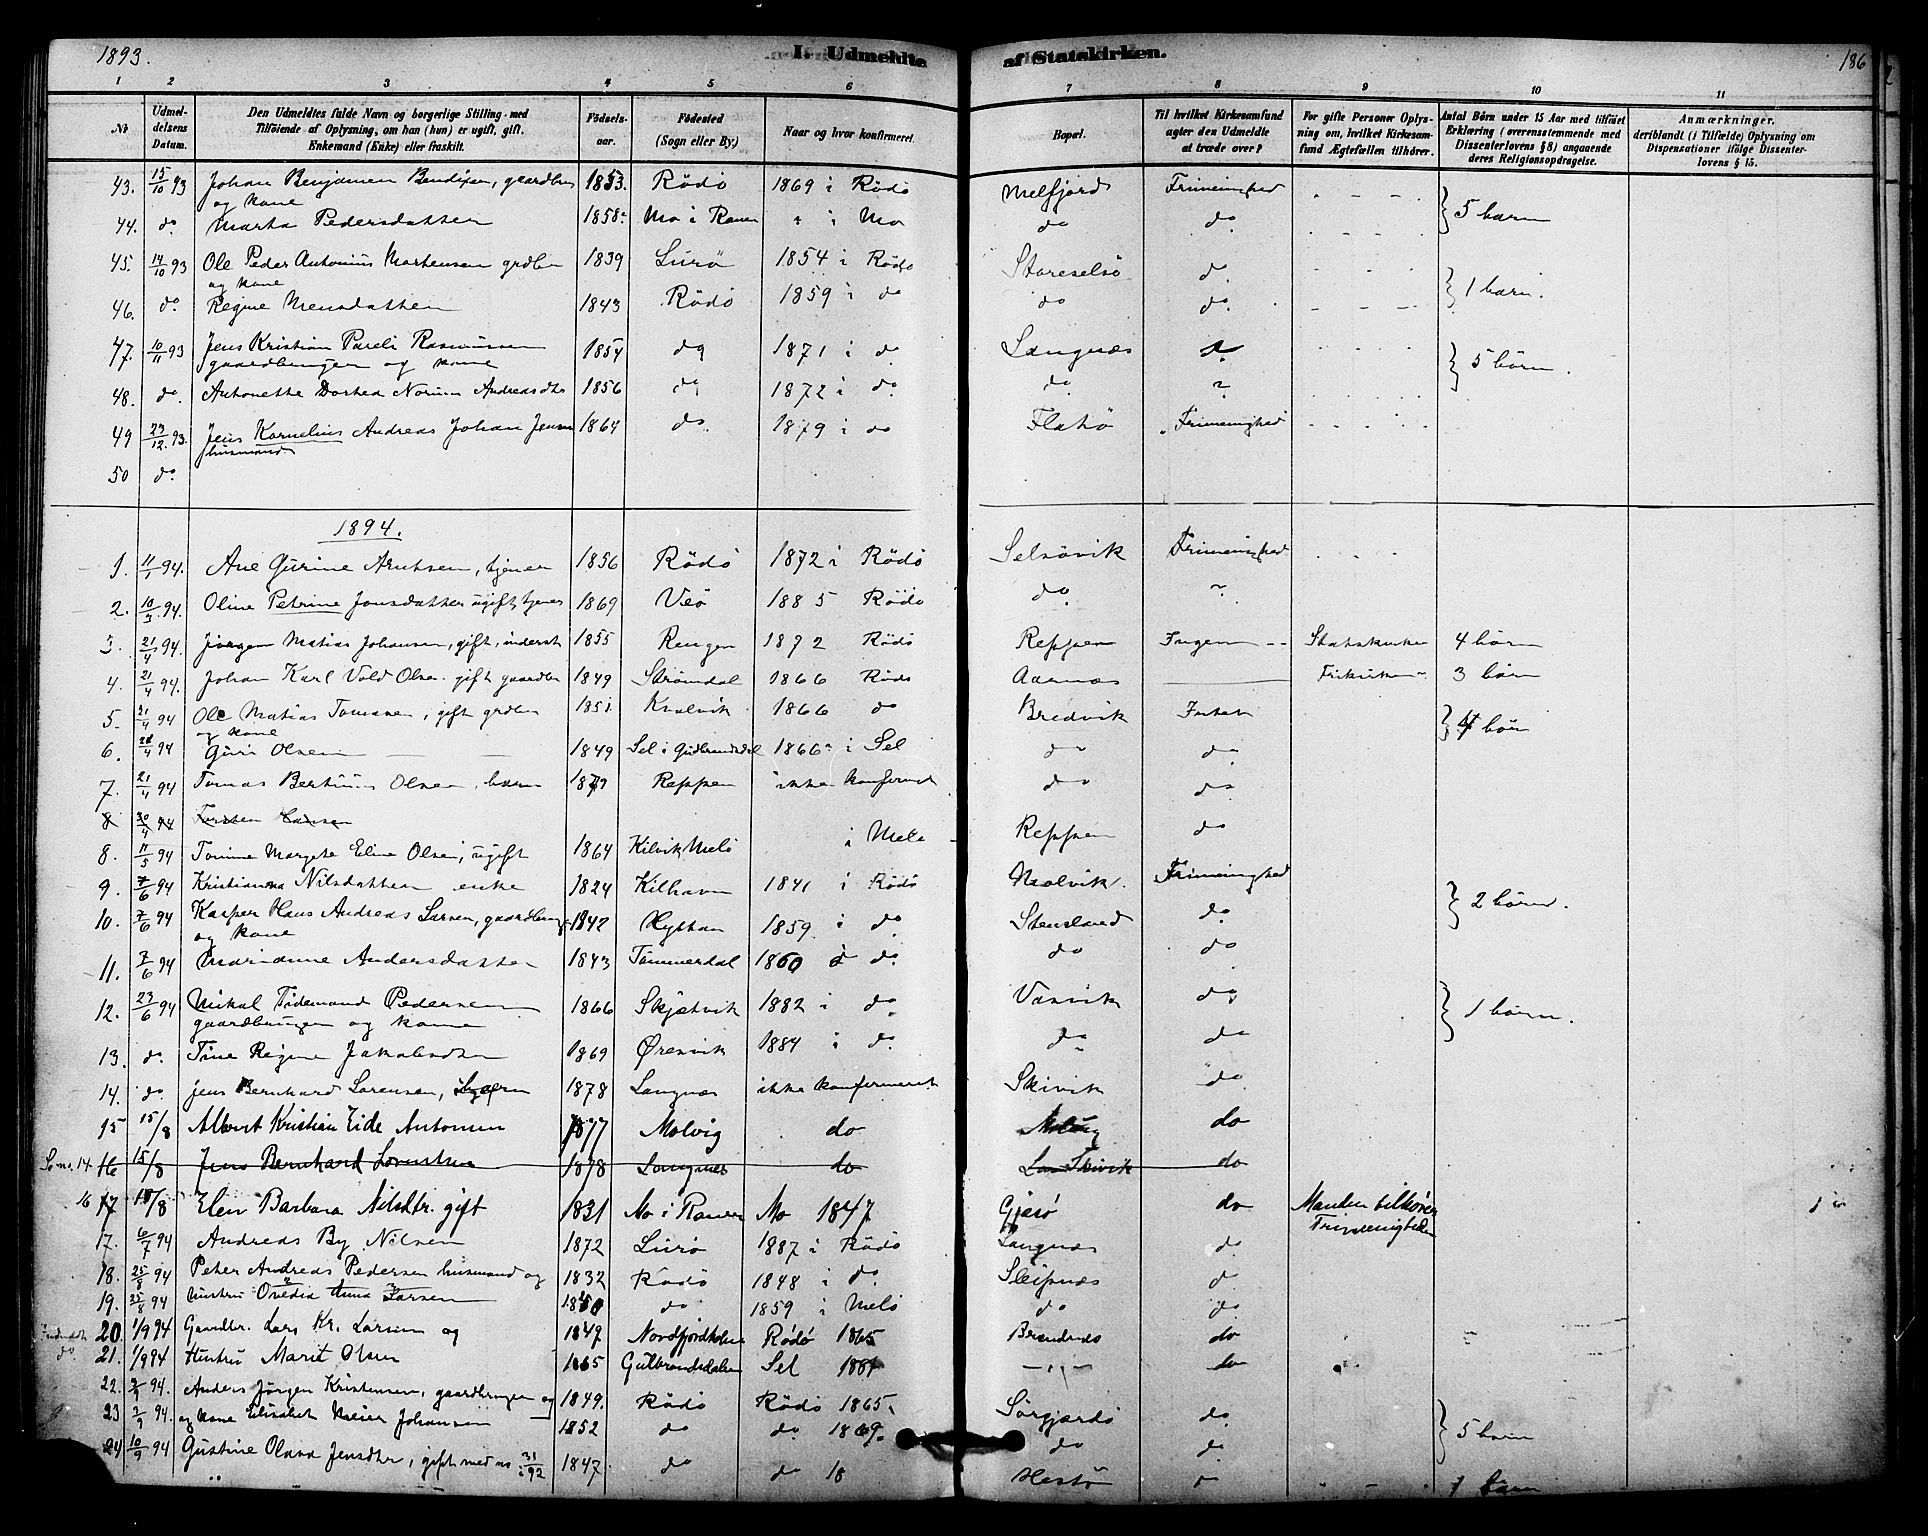 1893.
I. Udmeldte af Statskirken.
186
1 2 3 4 5 6 7 8 9 10 11
No
Udmeldelsens Datum.
Den Udmeldtes fulde Navn og borgerlige Stilling med Tilføiende af Oplysning, om han (hun) er ugift, gift, Enkemand (Enke) eller fraskilt.
Fødselsaar.
Fødested (Sogn eller By.)
Naar og hvor konfirmeret.
Bopæl.
Til hvilket Kirkesamfund agter den Udmeldte at træde over?
For gifte Personer Oplysning om, hvilket Kirkesamfund Ægtefællen tilhører.
Antal Børn under 15 Aar med tilføiet Erklæring (overensstemmende med Dissenterlovens § 8) angaaende deres Religionsopdragelse.
Anmærkninger. deriblandt (i Tilfælde) Oplysning om Dispensationer ifølge Dissenterlovens § 15.
43. 15/10 93 Johan Benjamin Bendixen, gaardbr 1853. Rödö 1869 i Rödö Melfjord Frimenighed
og kone
44. do. Marta Pedersdatter 1858 Mo i Ranen " i Mo do do. } 5 barn
45. 14/10 93 Ole Peder Antonius Mortensen grdbr 1839 Lurö 1854 i Rödö Storeselsö do.
og kone
46. do. Regine Mensdatter 1843 Rödö 1859 i do do do. } 1 barn.
47. 10/11 93 Jens Kristian Pareli Rasmussen 1854 do 1871 i do Langnæs do
gaardbruger og kone } 5 börn.
48. do. Antonette Dorthea Norum Andreasdtr 1856 do 1872 i do. do "
49 23/12 93. Jens Kornelius Andreas Johan Jensen 1864 do. 1879 i do Flatö Frimenighed
husmand
50 do.
1894.
1. 11/1 94. Ane Gurine Arntsen, tjener 1856 Rödö 1872 i Rödö Selsövik Frimenighed
2. 10/3 94. Oline Petrine Jonsdatter ugift, tjener 1869 Veö 1885 Rödö do. "
3. 21/4 94. Jörgen Matias Johansen, gift, inderst 1855 Rengen 1872 Rödö Reppen Ingen Statskirken 4 börn
4. 21/4 94. Johan Karl Vold Olsen. gift gaardbr 1849 Strömdal 1866 Rödö Aarnæs Frikirken 3 börn
5. 21/4 94 Ole Matias Tomasen, gift grdbr 1851 Kvalvik 1866 do Bredvik Intet
og kone } 4 börn
6. 21/4 94 Guri Olsen 1849 Sel i Gudbrandsdal 1866 i Sel do do.
7. 21/4 94 Tomas Bertinus Olsen, barn 1879 Reppen ikke konfirmert do do.
8 30/4 94 Torsten Hansen
8. 11/5 94 Tomine Margete Eline Olsen, ugift 1864 Kilvik Melö i Melö Reppen do
9. 7/6 94 Kristianna Nilsdatter enke 1824 Kilhavn 1841 i Rödö Molvik. Frimenighed
10. 7/6 94 Kasper Hans Andreas Larsen, gaardbruger 1842 Hyttan 1859. i do. Stensland do. } 2 börn.
og kone
11. 7/6 94 Marianne Andersdatter 1843 Tömmerdal 1860 i do. do do
12. 23/6 94 Mikal Tidemand Pedersen 1866 Skjætvik 1882 i do. Værvik do.
gaardbruger og kone } 1 börn.
13. do. Tine Regine Jakobsdtr 1869 Öresvik 1884 i do. do do
14. do jens Bernhard Sörensen, 1878 Langnæs ikke konfirmeret Skivik do
15 15/8 Albert Kristian Eide Antonsen 1877 Molvig do Molvig do
Se no. 14. 16 15/8 Jens Bernhard Lorentsen 1878 Langnæs do Skivik do
16 17 18/8 Elen Barbara Nilsdtr. gift 1831 Mo i Ranen Mo 1847 Gjærö do Manden tilhører Frimenigheden
17. 6/7 94 Andreas By Nilsen 1872 Lurö 1887 i Rödö Langnæs do.
18. 25/8 94 Peter Andreas Pedersen husmand og 1832 Rödö 1848 i do. Sleipnæs do
19. 25/8 94 hustru Ovedia Anna Larsen 1850 do 1859 i Melö do do.
20. 1/9 94 Gaardbr. Lars Kr. Larsen og 1847 Nordfjordholmen Rödö 1865 Brændnæs do
do 21. 1/9 94 Hustru Marit Olsen 1865 Gulbrandsdalen Sel 1881 — " — do
22. 2/9 94. Anders Jörgen Kristensen, gaardbruger og 1849. Rödö Rödö 1865. Sörgjærdö do.
23 2/9 94. og kone Elisabet Meier Johansen 1852 do do 1869. do do. } 5 barn
24 10/9 94 Gustine Olava Jensdtr, gift med no 31 i 92 1847. do do 18 Hestö do 1 barn